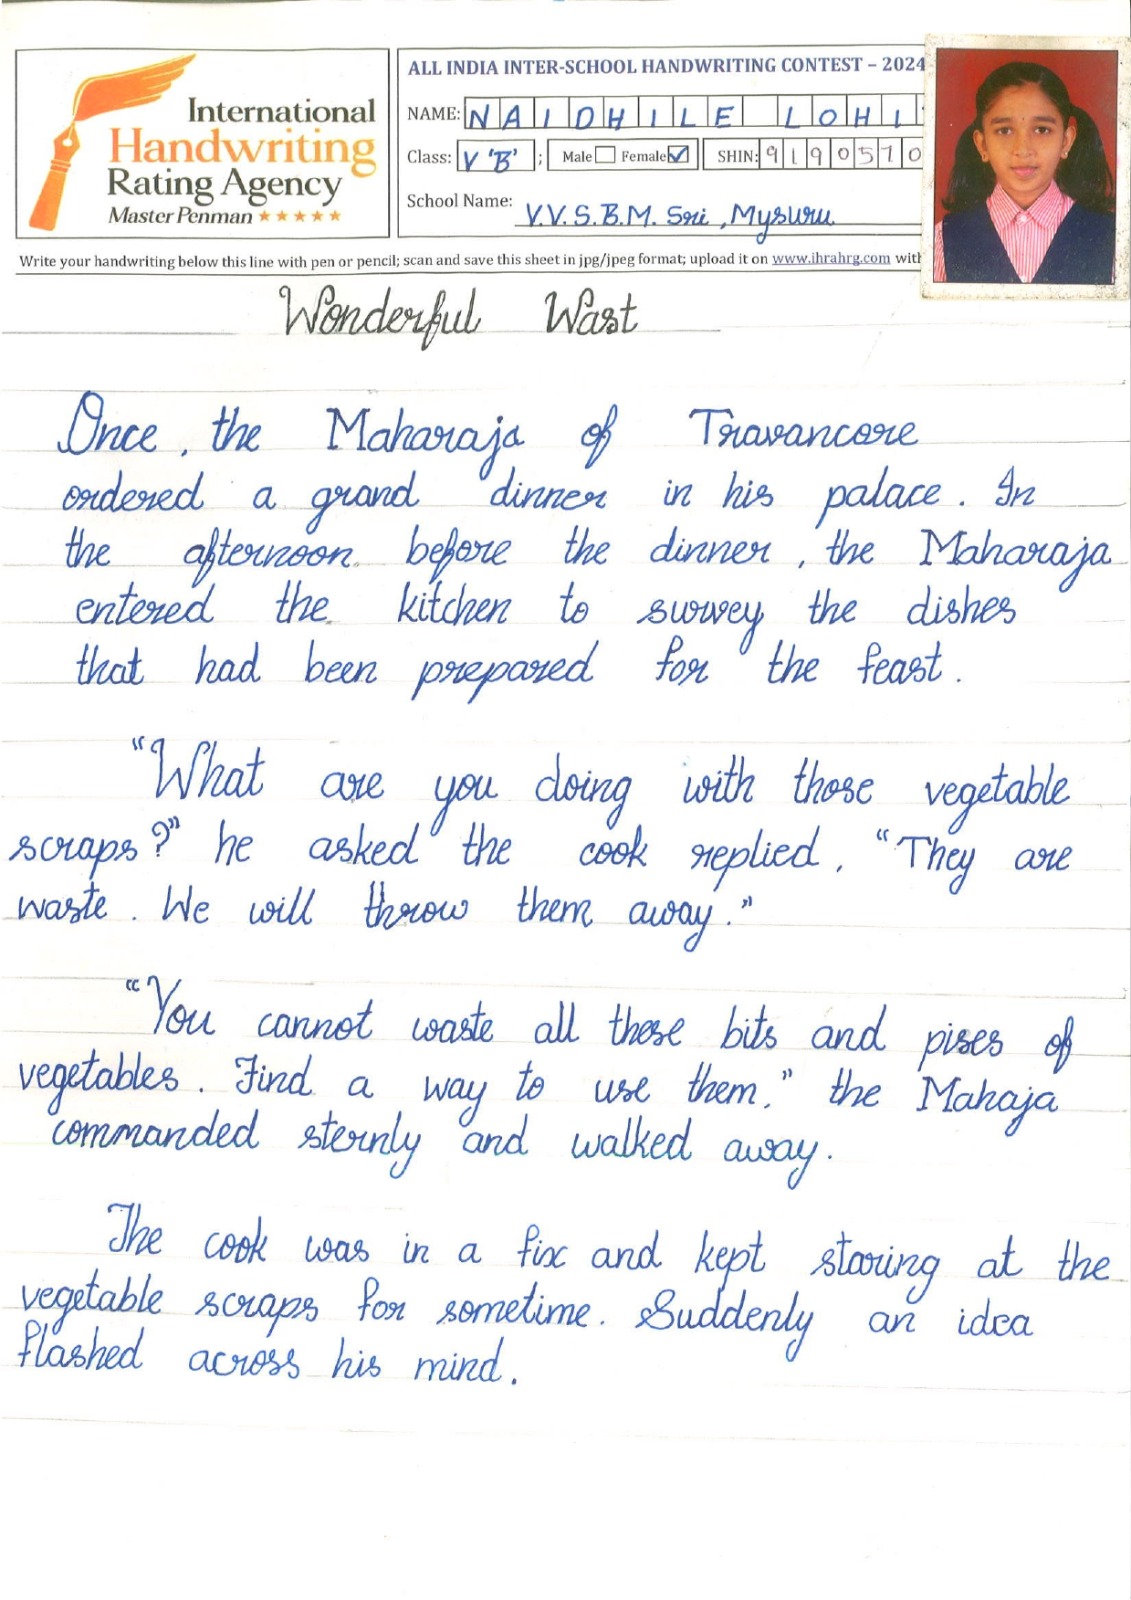 International
Handwriting
Rating Agency
Master Penman
ALL INDIA INTER-SCHOOL HANDWRITING CONTEST – 2024
NAME: NAIDHILE LOHI
Class: V 'B' ; Male Female SHIN: 9190570
School Name: V.V.S.B.M. Sri , Mysuru
Write your handwriting below this line with pen or pencil; scan and save this sheet in jpg/jpeg format; upload it on www.ihrahrg.com with
Wonderful Wast
Once, the Maharaja of Travancore
ordered a grand dinner in his palace. In
the afternoon before the dinner, the Maharaja
entered the kitchen to survey the dishes
that had been prepared for the feast.
"What are you doing with those vegetable
scraps?" he asked the cook replied, "They are
waste. We will throw them away."
"You cannot waste all these bits and pises of
vegetables. Find a way to use them." the Mahaja
commanded sternly and walked away.
The cook was in a fix and kept staring at the
vegetable scraps for sometime. Suddenly an idea
flashed across his mind.